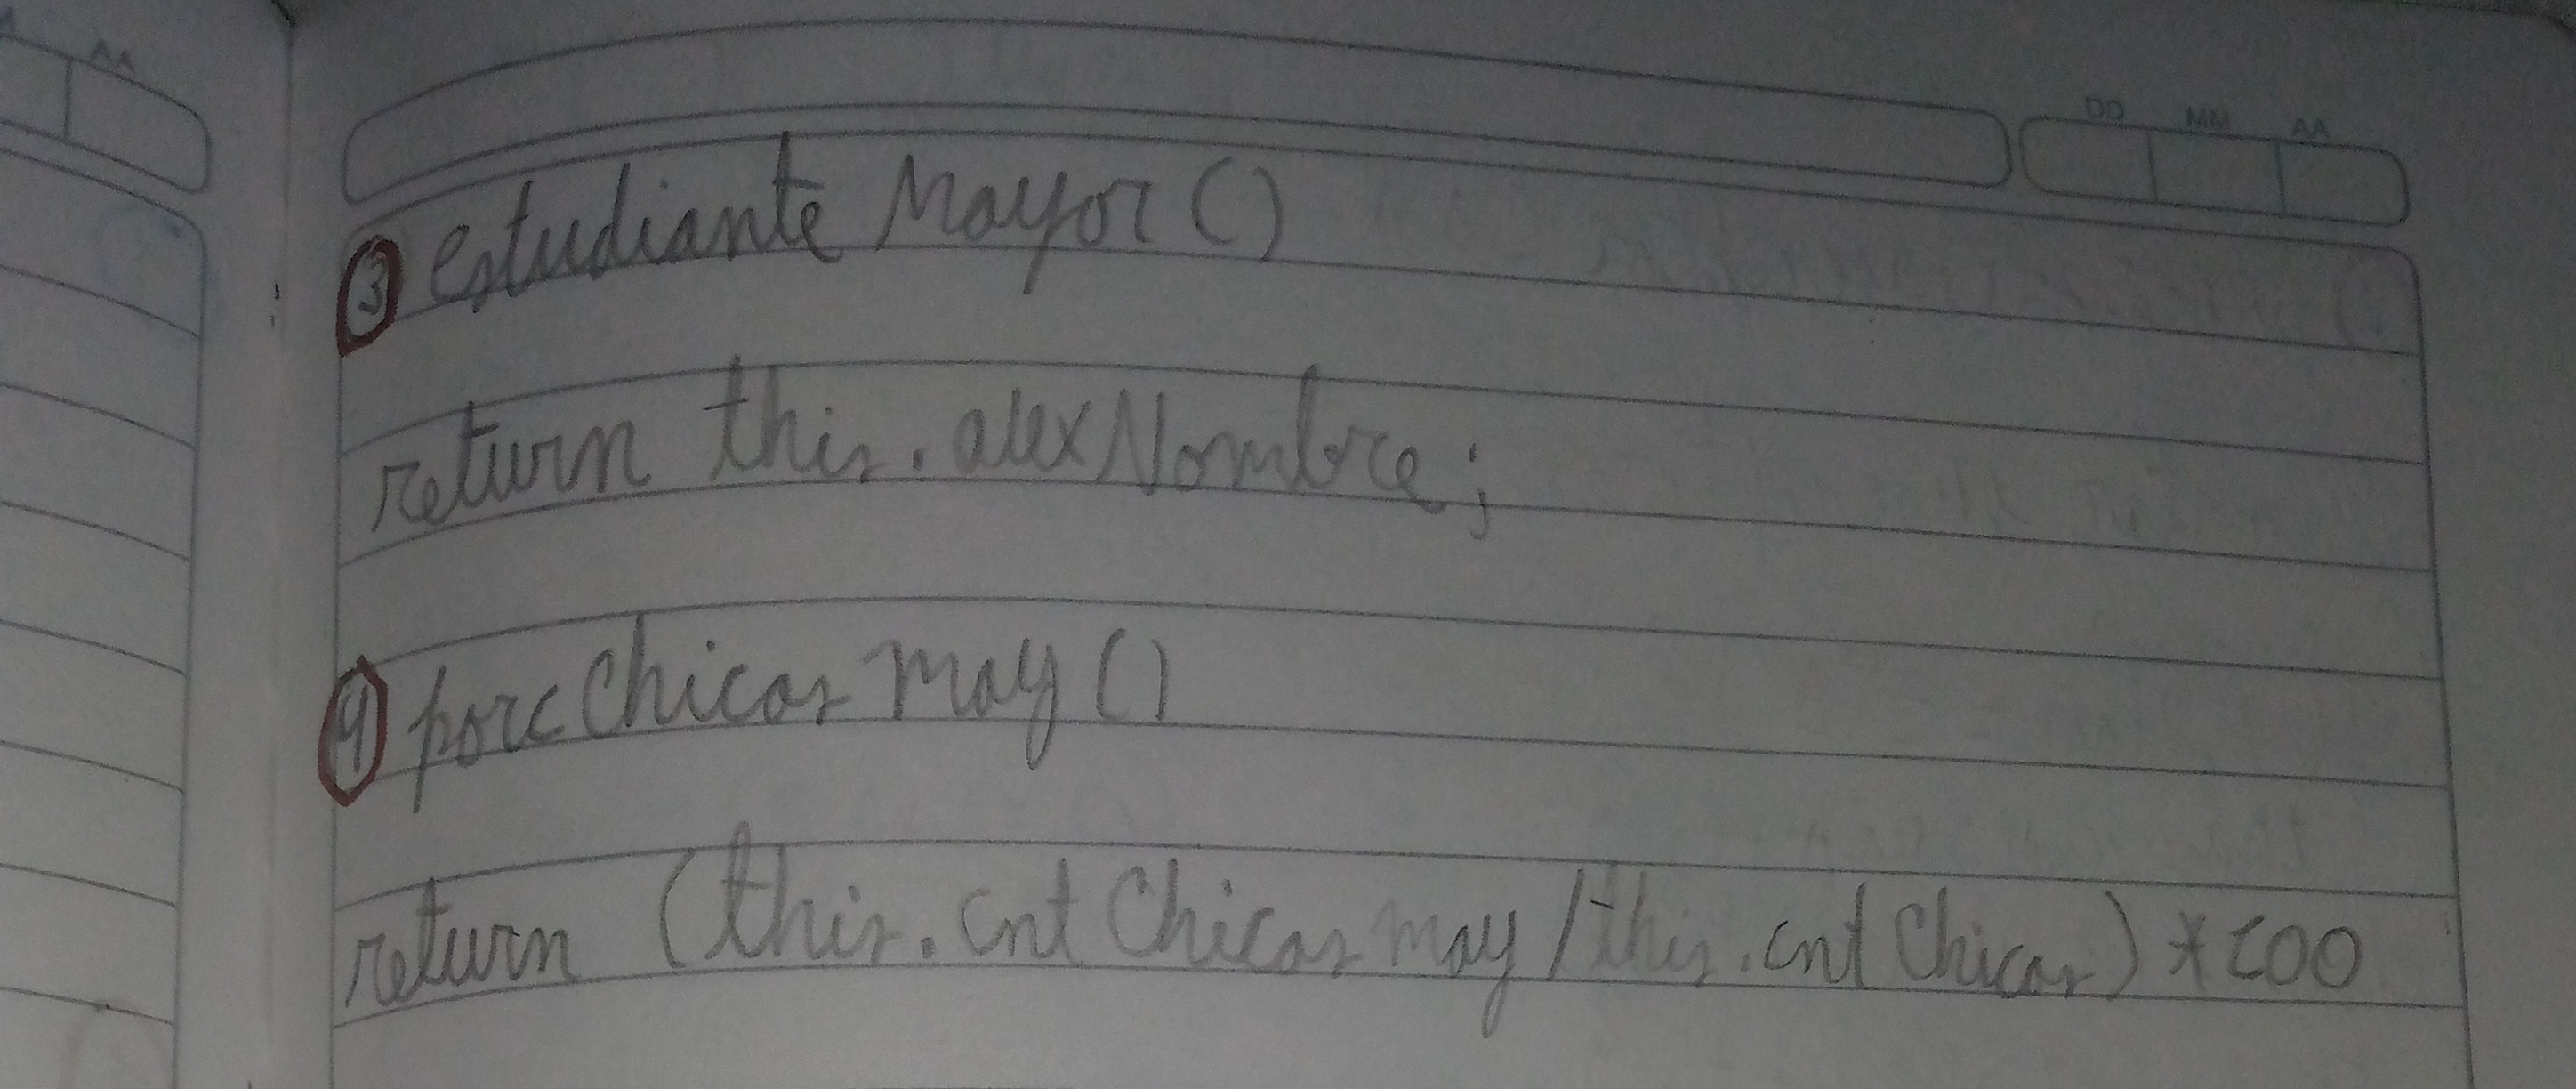 AA
DD MM AA
③ estudiante Mayor ()
return this. alexNombre;
④ porc Chicas may ()
return (this. cnt Chicas may / this. cnt Chicas) * 100